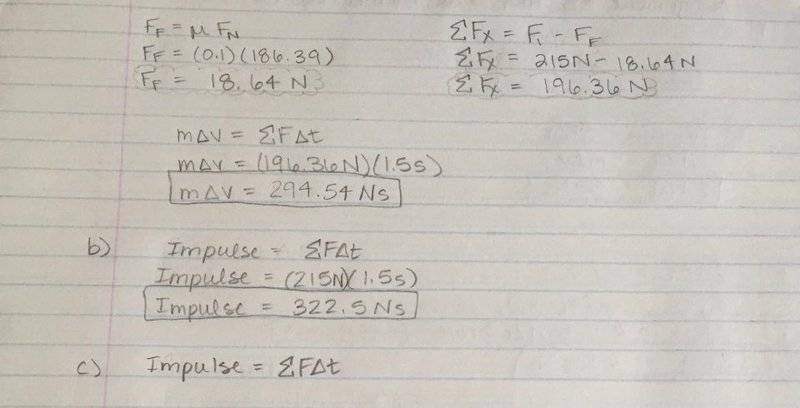 F_F = μ F_N
F_F = (0.1)(186.39)
F_F = 18.64 N
ΣF_x = F_1 - F_F
ΣF_x = 215N - 18.64 N
ΣF_x = 196.36 N
mΔv = ΣFΔt
mΔv = (196.36N)(1.5s)
mΔv = 294.54 Ns
b) Impulse = ΣFΔt
Impulse = (215N)(1.5s)
Impulse = 322.5 Ns
c) Impulse = ΣFΔt